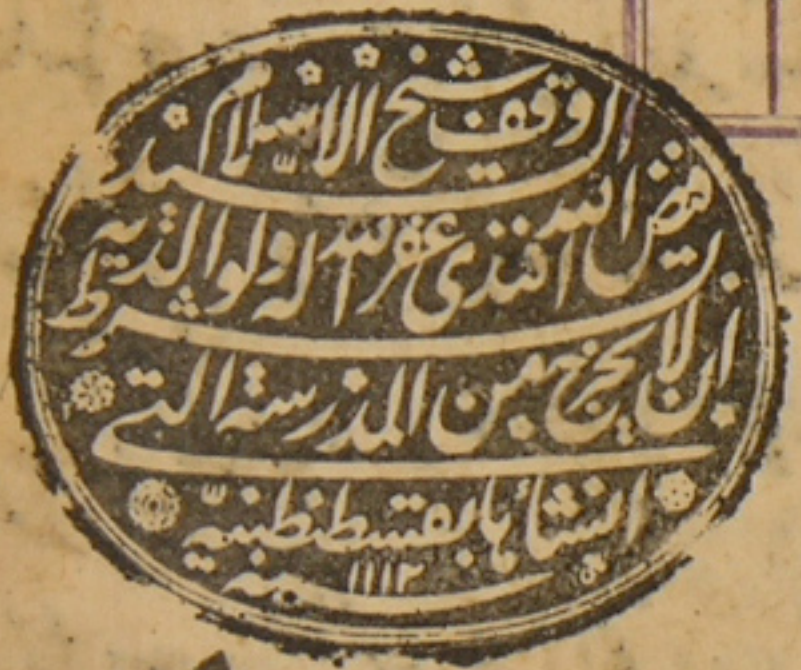 وقف شيخ الاسلام السيد
فيض الله افندى غفر الله له ولوالديه
بشرط ان لا يخرج من المدرسة التى
انشأها بقسطنطنيّة
سنه ١١١٢